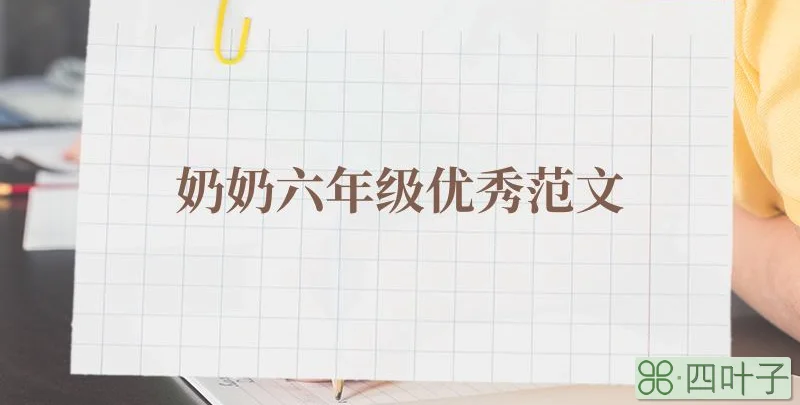 奶奶六年级优秀范文
四叶子